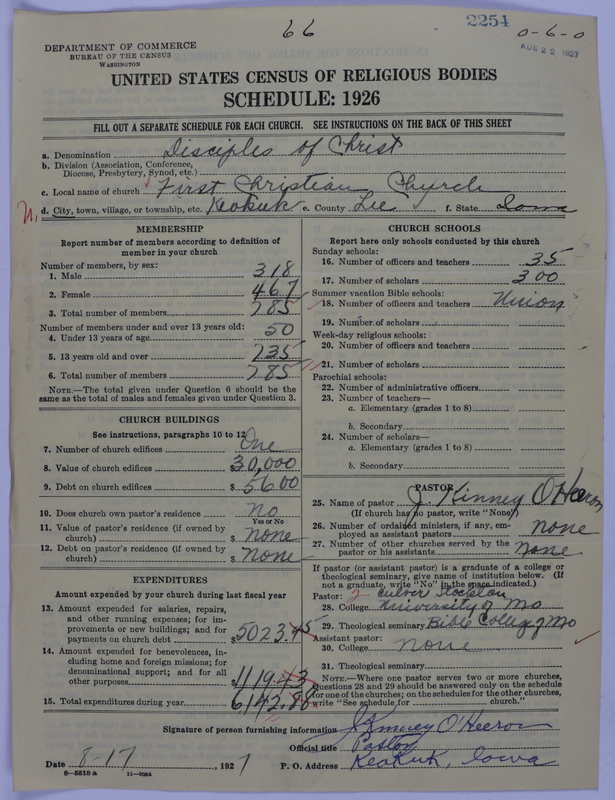 66
2254
0-6-0
AUG 22 1927
DEPARTMENT OF COMMERCE
BUREAU OF THE CENSUS
WASHINGTON
UNITED STATES CENSUS OF RELIGIOUS BODIES
SCHEDULE: 1926
FILL OUT A SEPARATE SCHEDULE FOR EACH CHURCH. SEE INSTRUCTIONS ON THE BACK OF THIS SHEET
a. Denomination Disciples of Christ
b. Division (Association, Conference, Diocese, Presbytery, Synod, etc.)
c. Local name of church First Christian Church
d. City, town, village, or township, etc. Keokuk e. County Lee f. State Iowa
MEMBERSHIP
Report number of members according to definition of member in your church
Number of members, by sex:
1. Male 318
2. Female 467
3. Total number of members 785
Number of members under and over 13 years old:
4. Under 13 years of age 50
5. 13 years old and over 735
6. Total number of members 785
NOTE.—The total given under Question 6 should be the same as the total of males and females given under Question 3.
CHURCH BUILDINGS
See instructions, paragraphs 10 to 12
7. Number of church edifices One
8. Value of church edifices $ 30,000
9. Debt on church edifices $ 5600
10. Does church own pastor's residence No
Yes or No
11. Value of pastor's residence (if owned by church) $ none
12. Debt on pastor's residence (if owned by church) $ none
EXPENDITURES
Amount expended by your church during last fiscal year
13. Amount expended for salaries, repairs, and other running expenses; for improvements or new buildings; and for payments on church debt $5023.45
14. Amount expended for benevolences, including home and foreign missions; for denominational support; and for all other purposes $1119.43
15. Total expenditures during year 6142.88
CHURCH SCHOOLS
Report here only schools conducted by this church
Sunday schools:
16. Number of officers and teachers 35
17. Number of scholars 300
Summer vacation Bible schools:
18. Number of officers and teachers Union
19. Number of scholars
Week-day religious schools:
20. Number of officers and teachers
21. Number of scholars
Parochial schools:
22. Number of administrative officers
23. Number of teachers—
a. Elementary (grades 1 to 8)
b. Secondary
24. Number of scholars—
a. Elementary (grades 1 to 8)
b. Secondary
PASTOR
25. Name of pastor J. Kinney O'Heeron
(If church has no pastor, write "None")
26. Number of ordained ministers, if any, employed as assistant pastors none
27. Number of other churches served by the pastor or his assistants none
If pastor (or assistant pastor) is a graduate of a college or theological seminary, give name of institution below. (If not a graduate, write "No" in the space indicated.)
Pastor: 2 Culver Stockton
28. College University of Mo
29. Theological seminary Bible College of Mo
Assistant pastor:
30. College none
31. Theological seminary
NOTE.—Where one pastor serves two or more churches, Questions 28 and 29 should be answered only on the schedule for one of the churches; on the schedules for the other churches, write "See schedule for church."
Signature of person furnishing information J. Kinney O'Heeron
Official title Pastor
Date 8-17, 1927 P. O. Address Keokuk, Iowa
8—5518 a 11—9084